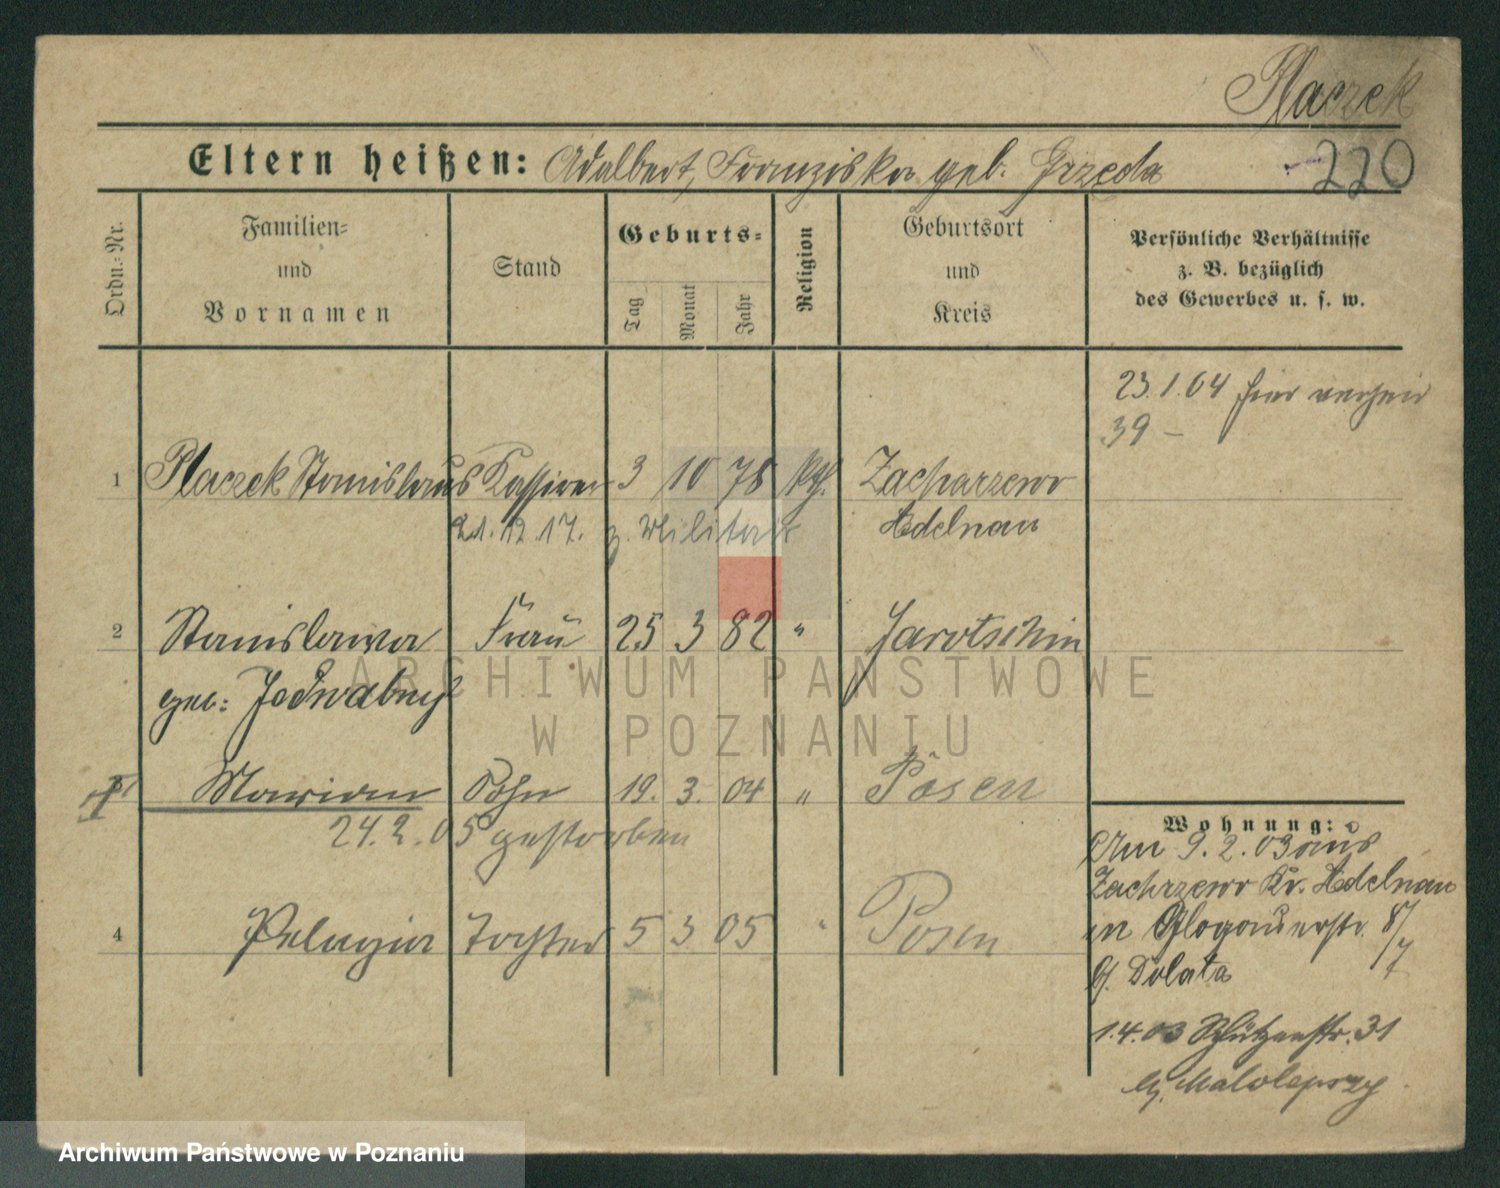 Placzek
Eltern heißen: Adalbert, Franziska geb. Grzęda
220
Ordn.-Nr.
Familien- und Vornamen
Stand
Geburts-
Tag Monat Jahr
Religion
Geburtsort und Kreis
Persönliche Verhältnisse
z. B. bezüglich
des Gewerbes u. s. w.
23.1.04 hier verheir
39 –
1 Placzek Stanislaus Kassirer 3 10 78 kth. Zacharzewo
21.12.17. z. Militär Adelnau
2 Stanislawa Frau 25 3 82 " Jarotschin
geb: Jedwabny
Marian Sohn 19. 3. 04 " Posen
24.2.05 gestorben
4 Pelagia Tochter 5 3 05 " Posen
Wohnung:
Am 9.2.03 aus
Zachrzewo Kr. Adelnau
in Glogauerstr. 87/7
b/. Dolata
1.4.03 Schützenstr. 31
b/. Malolepszy
ARCHIWUM PAŃSTWOWE
W POZNANIU
Archiwum Państwowe w Poznaniu